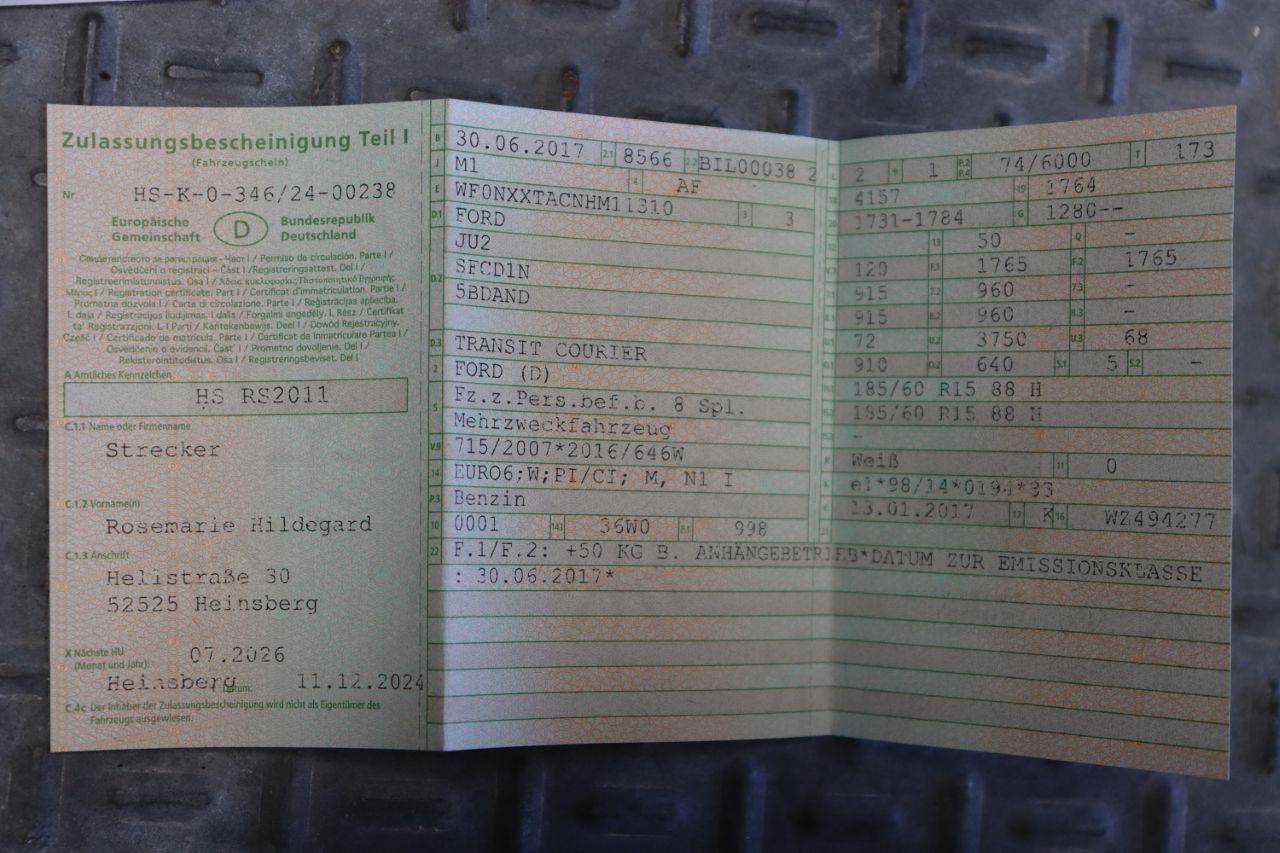 Zulassungsbescheinigung Teil I
(Fahrzeugschein)
Nr. HS-K-0-346/24-00238
Europäische Gemeinschaft D Bundesrepublik Deutschland
Osvědčení o registraci – Část I / Registreringsattest. Del I /
Registreerimistunnistus. Osa I /
Registration certificate. Part I / Certificat d'immatriculation. Partie I /
Prometna dozvola I / Carta di circolazione. Parte I / Reģistrācijas apliecība.
I. daļa / Registracijos liudijimas. I dalis / Forgalmi engedély. I. Rész / Ċertifikat
ta' Reġistrazzjoni. L-I Parti / Kentekenbewijs. Deel I / Dowód Rejestracyjny.
Część I / Certificado de matrícula. Parte I / Certificat de înmatriculare Partea I /
Osvedčenie o evidencii. Časť I / Prometno dovoljenje. Del I /
Rekisteröintitodistus. Osa I / Registreringsbeviset. Del I
A Amtliches Kennzeichen
HS RS2011
C.1.1 Name oder Firmenname
Strecker
C.1.2 Vorname(n)
Rosemarie Hildegard
C.1.3 Anschrift
52525 Heinsberg
X Nächste HU
(Monat und Jahr): 07.2026
Heinsberg Datum: 11.12.2024
C.4c Der Inhaber der Zulassungsbescheinigung wird nicht als Eigentümer des
Fahrzeugs ausgewiesen.
B 30.06.2017 2.1 8566 2.2 BIL00038 2
J M1 4 AF
E WF0NXXTACNHM11310 3 3
D.1 FORD
JU2
D.2 SFCD1N
5BDAND
D.3 TRANSIT COURIER
2 FORD (D)
5 Fz.z.Pers.bef.b. 8 Spl.
Mehrzweckfahrzeug
V.9 715/2007*2016/646W
14 EURO6;W;PI/CI; M, N1 I
P.3 Benzin
10 0001 14.1 36W0 P.1 998
22 F.1/F.2: +50 KG B. ANHÄNGEBETRIEB*DATUM ZUR EMISSIONSKLASSE
: 30.06.2017*
L 2 9 1 P.2 P.4 74/6000 T 173
18 4157 19 1764
20 1731-1784 G 1280--
13 50 Q -
V.7 120 F.1 1765 F.2 1765
7.1 915 7.2 960 7.3 -
8.1 915 8.2 960 8.3 -
U.1 72 U.2 3750 U.3 68
O.1 910 O.2 640 S.1 5 S.2 -
15.1 185/60 R15 88 H
15.2 185/60 R15 88 H
15.3 -
R Weiß 11 0
K e1*98/14*0194*33
6 13.01.2017 17 K 16 WZ494277
21